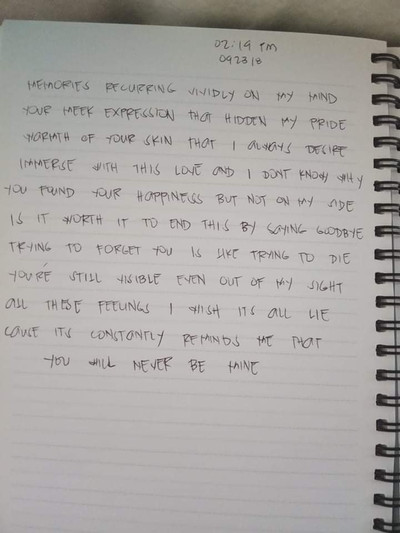 02:14 PM
092318
MEMORIES RECURRING VIVIDLY ON MY MIND
YOUR MEEK EXPRESSION THAT HIDDEN MY PRIDE
WARMTH OF YOUR SKIN THAT I ALWAYS DESIRE
IMMERSE WITH THIS LOVE AND I DONT KNOW WHY
YOU FOUND YOUR HAPPINESS BUT NOT ON MY SIDE
IS IT WORTH IT TO END THIS BY SAYING GOODBYE
TRYING TO FORGET YOU IS LIKE TRYING TO DIE
YOU'RE STILL VISIBLE EVEN OUT OF MY SIGHT
ALL THESE FEELINGS I WISH ITS ALL LIE
CAUSE ITS CONSTANTLY REMINDS ME THAT
YOU WILL NEVER BE MINE